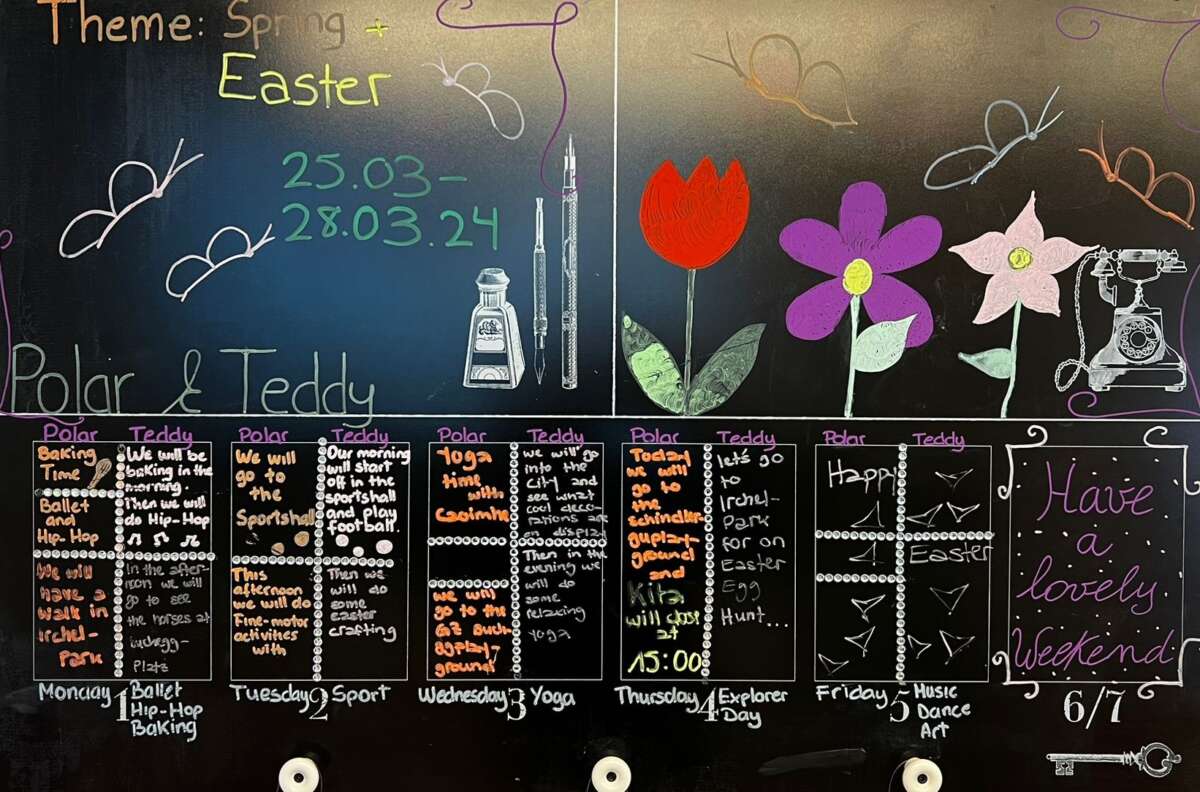 Theme: Spring +
Easter
25.03 –
28.03.24
Polar & Teddy
Polar
Baking
Time
Ballet
and
Hip-Hop
We will
have a
walk in
Irchel-
Park
Teddy
We will be
baking in the
morning.
Then we will
do Hip-Hop
In the after-
noon we will
go to see
the horses at
Platz
Monday 1 Ballet
Hip-Hop
Baking
Polar
We will
go to
the
Sportshall
This
afternoon
we will do
Fine-motor
activities
with
Teddy
Our morning
will start
off in the
sportshall
and play
football.
Then we
will do
some
easter
crafting
Tuesday 2 Sport
Polar
Yoga
time
with
Caoimhe
we will
go to the
GZ Buch-
eggplay-
ground
Teddy
we will go
into the
city and
see what
cool deco-
rations are
on display
Then in the
evening we
will do
some
relaxing
yoga
Wednesday 3 Yoga
Polar
Today
we will
go to
the
Schindler-
guplay-
ground
and
Kita
will close
at
15:00
Teddy
let's go
to
Irchel-
Park
for on
Easter
Egg
Hunt...
Thursday 4 Explorer
Day
Polar
Teddy
Happy
Easter
Friday 5 Music
Dance
Art
Have
a
lovely
Weekend
6/7